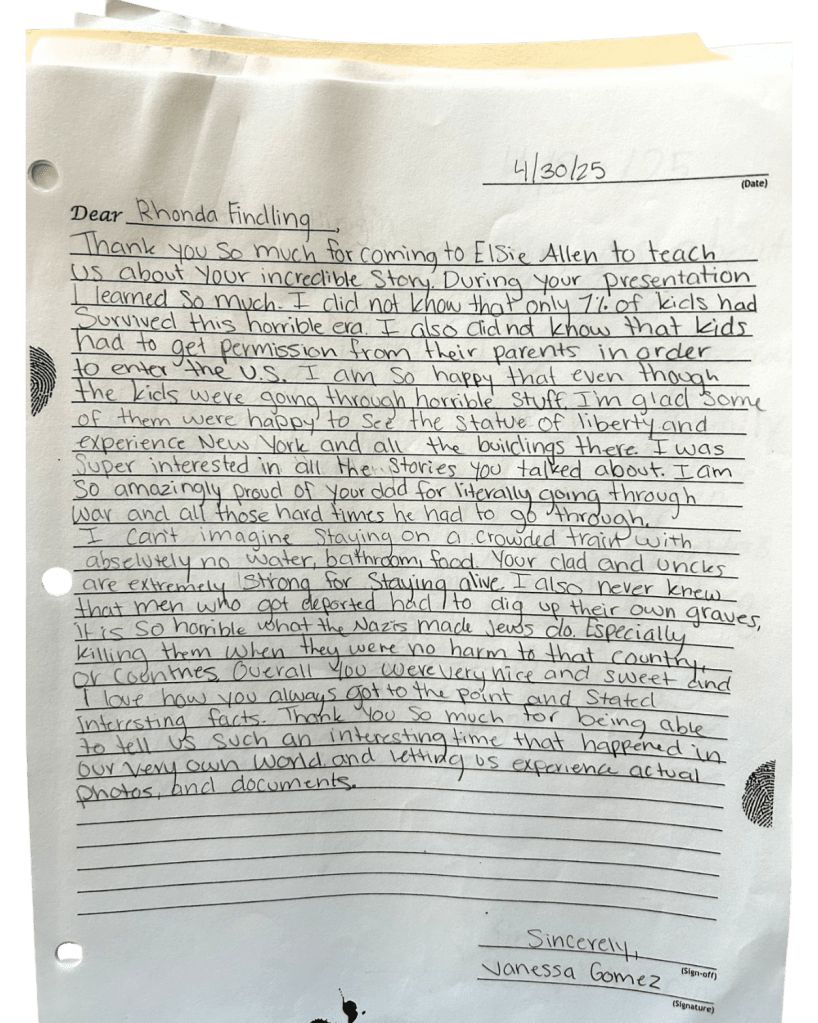 4/30/25
(Date)
Dear Rhonda Findling,
Thank you so much for coming to Elsie Allen to teach
us about your incredible story. During your presentation
I learned so much. I did not know that only 7% of kids had
Survived this horrible era. I also did not know that kids
had to get permission from their parents in order
to enter the U.S. I am so happy that even though
the kids were going through horrible stuff I'm glad some
of them were happy to see the statue of liberty and
experience New York and all the buildings there. I was
Super interested in all the stories you talked about. I am
so amazingly proud of your dad for literally going through
war and all those hard times he had to go through.
I can't imagine staying on a crowded train with
absolutely no water, bathroom, food. Your dad and uncles
are extremely strong for staying alive. I also never knew
that men who got deported had to dig up their own graves,
it is so horrible what the Nazis made Jews do. Especially
killing them when they were no harm to that country,
or countries. Overall you were very nice and sweet and
I love how you always got to the point and stated
interesting facts. Thank you so much for being able
to tell us such an interesting time that happened in
our very own world, and letting us experience actual
photos, and documents.
Sincerely,
(Sign-off)
Vanessa Gomez
(Signature)